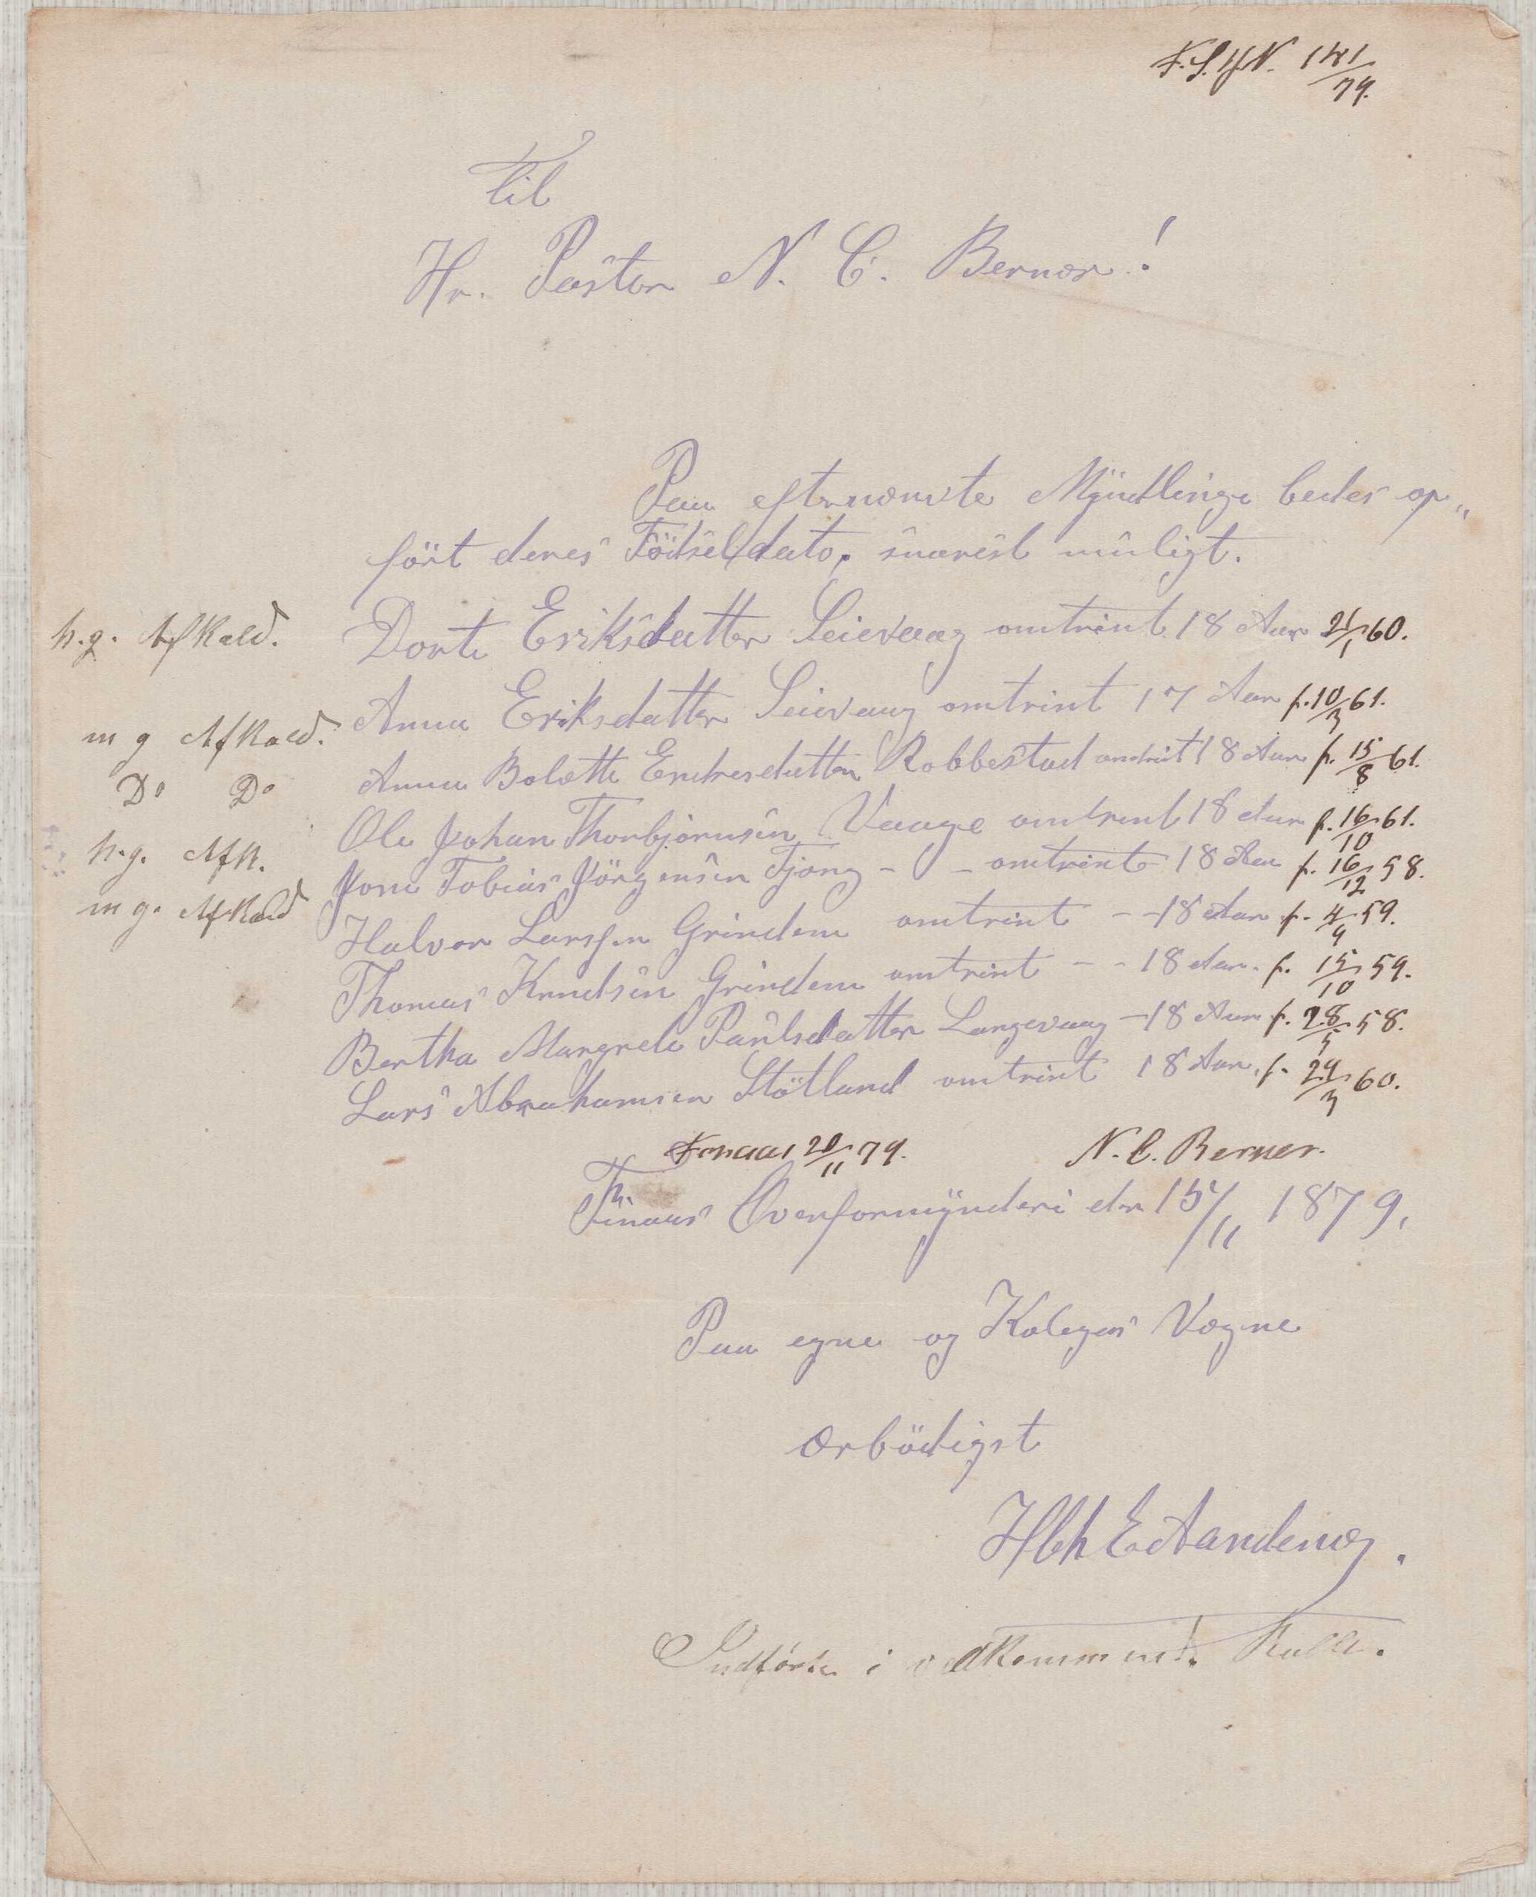 F.S.J.N. 141/79.
Til
Hr. Pastor N. C. Berner!
Paa efternævnte Myndlinge bedes op„
fört deres Födselsdato, snarest muligt.
h.g. Afkald. Dorte Eriksdatter Leievaag omtrint 18 Aar 21/1 60.
m g Afkald. Anna Eriksdatter Leievaag omtrint 17 Aar f. 10/3 61.
Do Do Anna Bolette Endresdatter Robbestad omtrint 18 Aar f. 15/8 61.
h.g. Afk. Ole Johan Thorbjörnsen Vaage omtrint 18 Aar f. 16/10 61.
m g. Afkald Jone Tobias Jörgensen Tjong - - omtrint 18 Aar f. 16/12 58.
Halvor Larssen Grindem omtrint - - 18 Aar f. 4/9 59.
Thomas Knudsen Grindem omtrint - - 18 Aar. f. 15/10 59.
Bertha Margrete Paulsdatter Langevaag - 18 Aar f. 28/5 58.
Lars Abrahamsen Stötland omtrint 18 Aar, f. 24/3 60.
Finaas 20/11 79. N. C. Berner.
Finaas Overformynderi den 15/11 1879,
Paa egne og Kolegas Vegne
Ærbödigst
E Aandenæs.
Indförte i vedkommend. Rulle.